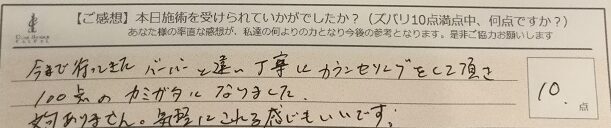 【ご感想】本日施術を受けられていかがでしたか?(ズバリ10点満点中、何点ですか?)
あなた様の率直な感想が、私達の何よりの力となり今後の参考となります。是非ご協力お願いします
今まで行ってきた バーバーと違い丁寧にカウンセリングをして頂き
100点のカミガタになりました。
10.点
ありません。気軽にこれる感じもいいです。